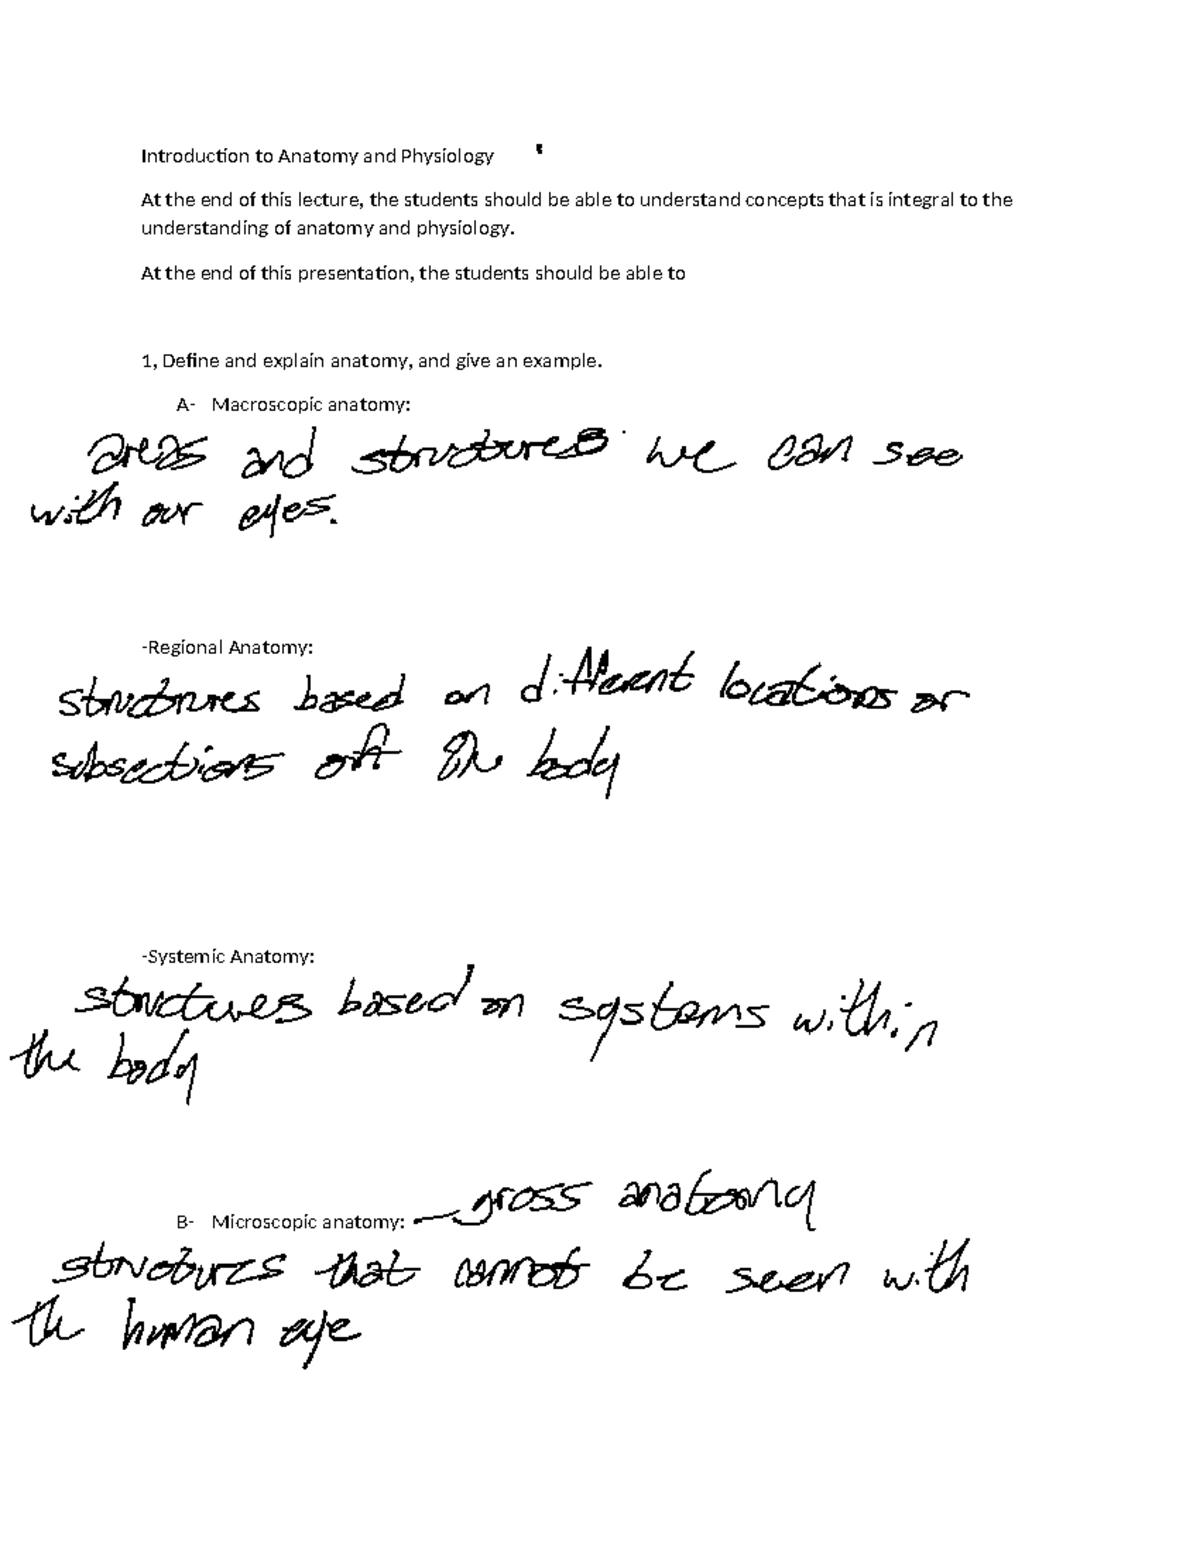 Introduction to Anatomy and Physiology
At the end of this lecture, the students should be able to understand concepts that is integral to the
understanding of anatomy and physiology.
At the end of this presentation, the students should be able to
1, Define and explain anatomy, and give an example.
A- Macroscopic anatomy:
areas and structures we can see
with our eyes.
-Regional Anatomy:
structures based on different locations or
subsections off the body
-Systemic Anatomy:
structures based on systems within
the body
gross anatomy
B- Microscopic anatomy:
structures that cannot be seen with
the human eye